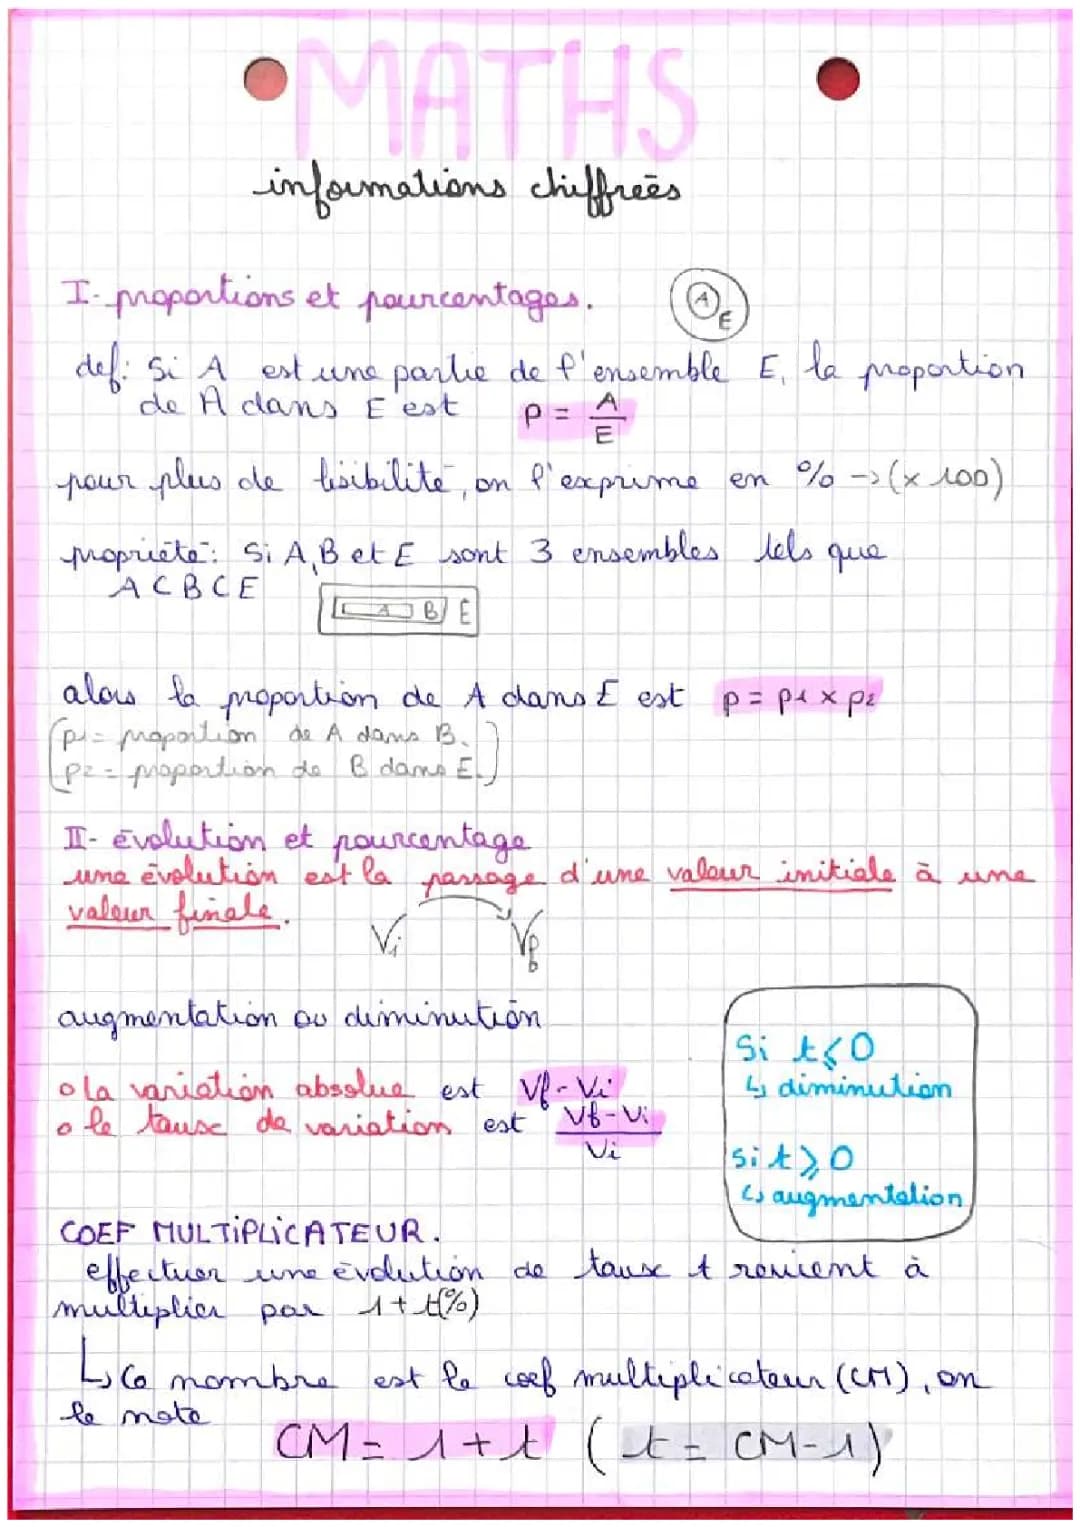 MATHS
informations chiffrées
I- proportions et pourcentages.
A
E
def: Si A est une partie de l'ensemble E, la proportion
de A dans E est p = A/E
pour plus de lisibilité, on l'exprime en % -> (x 100)
propriété: Si A, B et E sont 3 ensembles tels que
A ⊂ B ⊂ E
A B E
alors la proportion de A dans E est p = p1 x p2
(p1 = proportion de A dans B.)
(p2 = proportion de B dans E.)
II- évolution et pourcentage
une évolution est la passage d'une valeur initiale à une
valeur finale.
Vi Vf
augmentation ou diminution
o la variation absolue est Vf - Vi
o le taux de variation est Vf - Vi / Vi
Si t ⩽ 0
↳ diminution
Si t ⩾ 0
↳ augmentation
COEF MULTiPLiCATEUR.
effectuer une évolution de taux t revient à
multiplier par 1 + t(%)
↳ Ce nombre est le coef multiplicateur (CM), on
le note
CM = 1 + t ( t = CM - 1 )